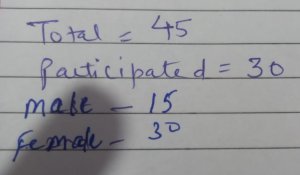 Total = 45
Participated = 30
Male - 15
Female - 30